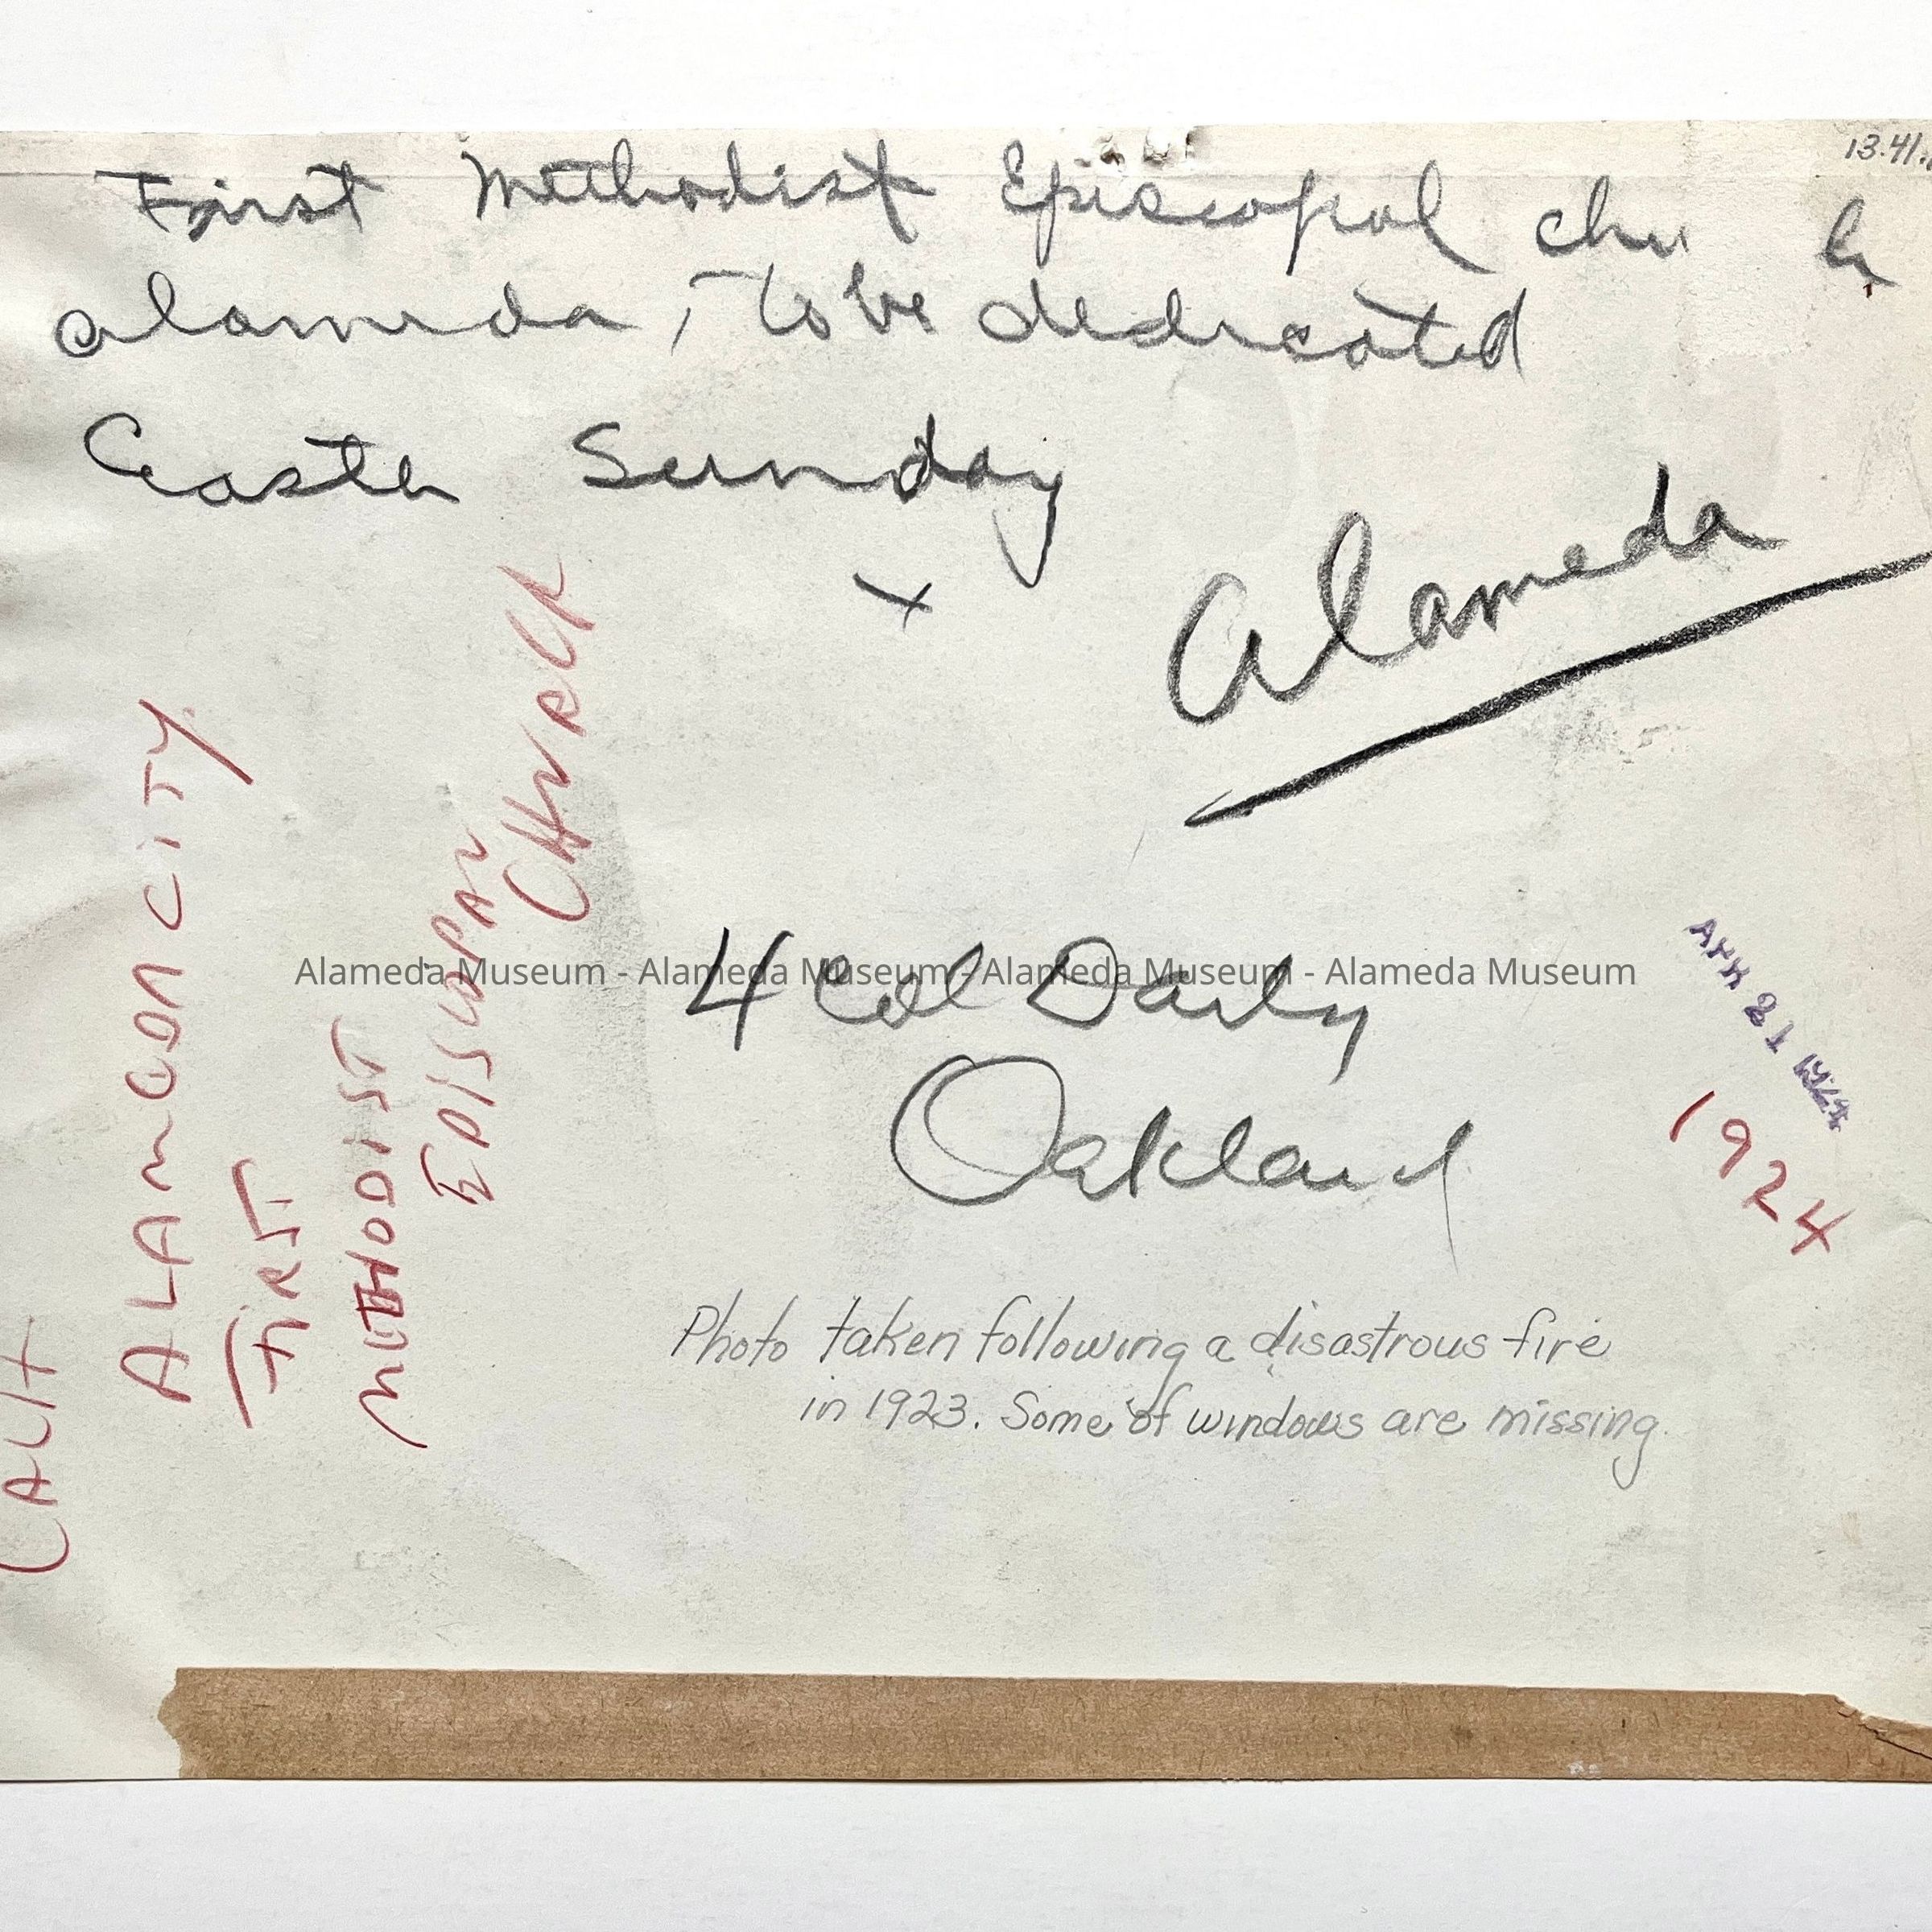 13.41.
First Methodist Episcopal chu h
alameda, to be dedicated
Easter Sunday
x
Alameda
CALIF
ALAMEDA CITY.
FIRST
METHODIST
EPISCOPAL
CHURCH
Alameda Museum - Alameda Museum - Alameda Museum - Alameda Museum
4 Col Daily
Oakland
APR 21 1924
1924
Photo taken following a disastrous fire
in 1923. Some of windows are missing.